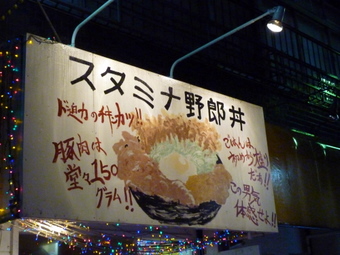 スタミナ野郎丼
ド迫力のチキカツ!!
豚肉は
堂々150
グラム!!
ごはんは
だぁ!!
この男気
体感せよ!!